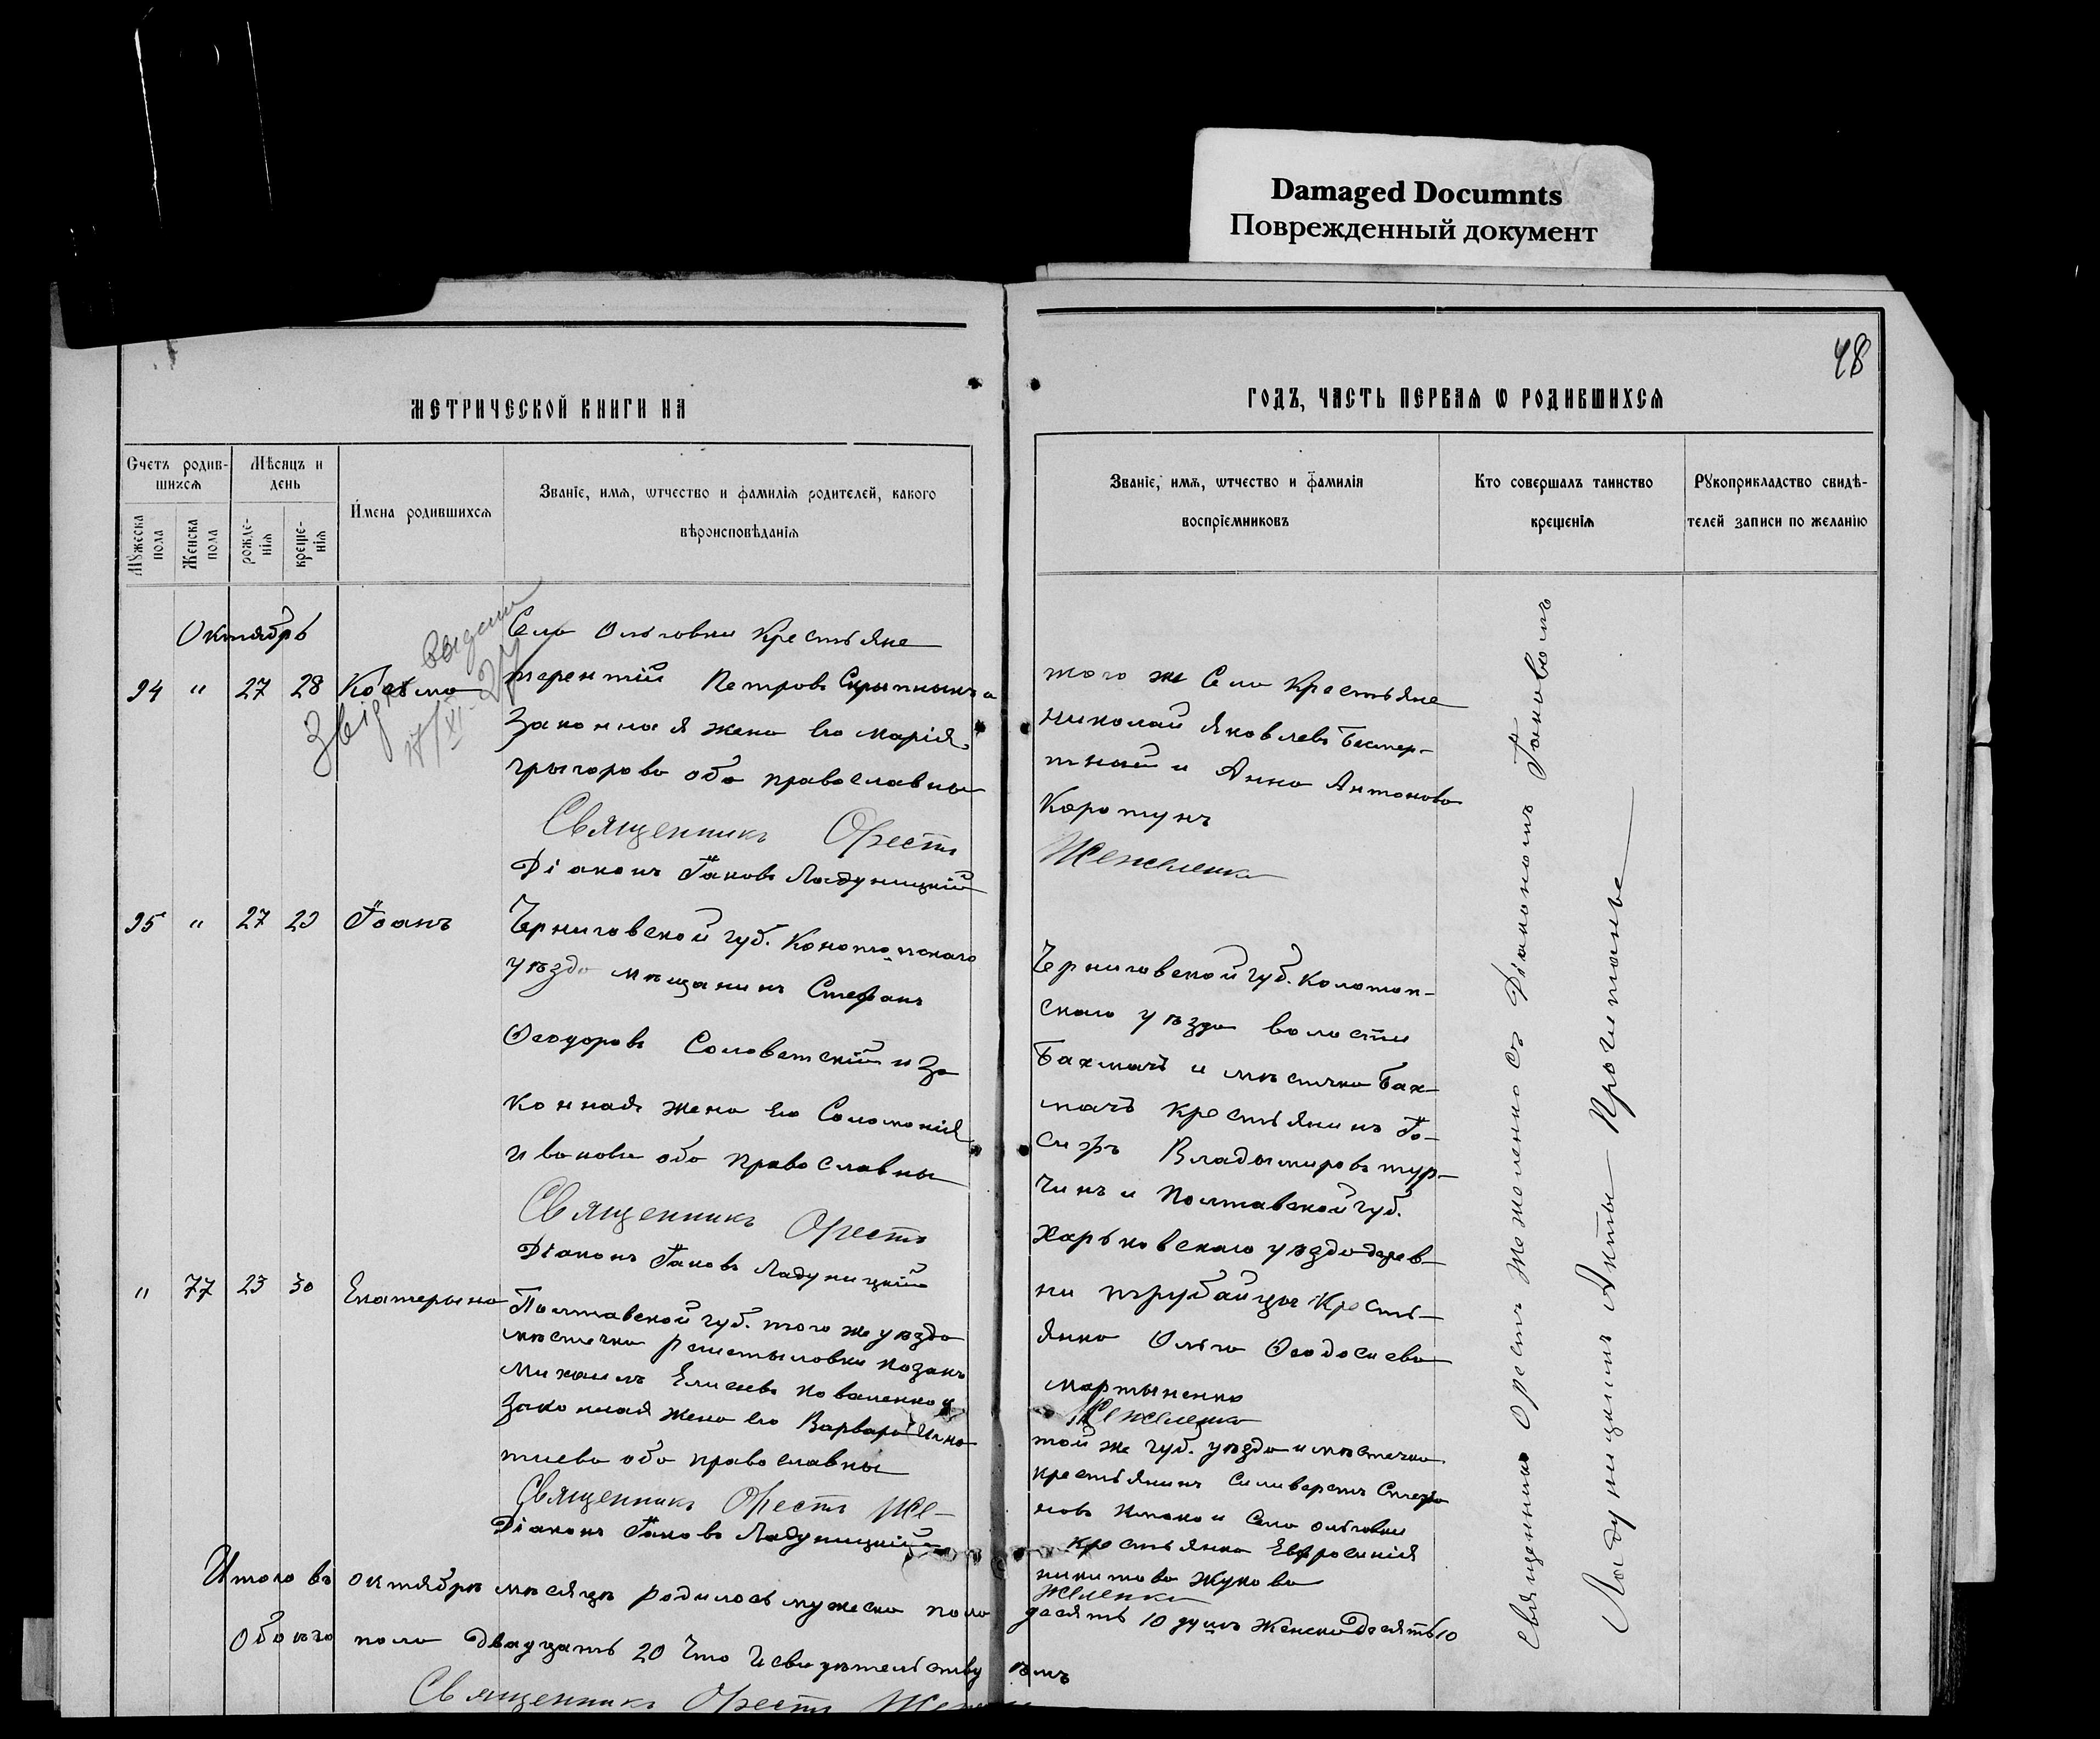 Damaged Documnts
Поврежденный документ
48
МЕТРИЧЕСКОЙ КНИГИ НА
ГОДЪ, ЧАСТЬ ПЕРВАЯ Ѡ РОДИВШИХСЯ
Счетъ родив-
шихся
Мѣсяцъ и
день
Мужеска
пола
Женска
пола
рожде-
нія
креще-
нія
Имена родившихся
Званіе, имя, ѡтчество и фамилія родителей, какого
вѣроисповѣданія
Званіе, имя, ѡтчество и фамилія
воспріемниковъ
Кто совершалъ таинство
крещенія
Рукоприкладство свидѣ-
телей записи по желанію
Октябрь
94 " 27 28 Косьма
Село Ольговки Крестьяне
терентій Петровъ
Законная жена его Марія
григорова оба православны
Священникъ Орестъ
Діаконъ Іаковъ Ладуницкій
того же Села Крестьяне
Николай Яковлевъ
и Анна Антонова
Коротунъ
Жежеленко
95 " 27 29 Іоанъ
Черниговской губ. Конотопскаго
уѣзда мѣщанинъ Стефанъ
Ѳеодоровъ Соловетскій и За
конная жена его Соломонія
Иванова оба православны
Священникъ Орестъ
Діаконъ Іаковъ Ладуницкій
Черниговской губ. Конотоп-
скаго уѣзда волости
Бахмачъ и мѣстечка Бах-
мачъ крестьянинъ Іо-
сифъ Владымировъ тур-
чинъ и Полтавской губ.
Харьковскаго уѣзда дерев-
ни трубайцы Кресть-
янка Ольга Ѳеодосиева
мартыненко
Жежеленко
" 77 29 30 Екатерына
Полтавской губ. того же уѣзда
мѣстечка решетыловки козакъ
Михаилъ Елисеевъ Коваленко и
Законная жена его Варвара Игна
тиева оба православны
Священникъ Орестъ Же-
Діаконъ Іаковъ Ладуницкій
той же губ. уѣзда и мѣстечка
крестьянинъ Силиверстъ Стефа
новъ и Села Ольговки
Крестьянка Евфросинія
никитова Жукова
желенко
Итого въ октябрѣ мѣсяцѣ родилось мужеска пола десять 10 душъ женска десять 10
Обоего пола двадцать 20 Что и свидѣтельствуемъ
Священникъ Орестъ
Священникъ Орестъ Жежеленко съ Діакономъ Іаковомъ
Ладуницкимъ